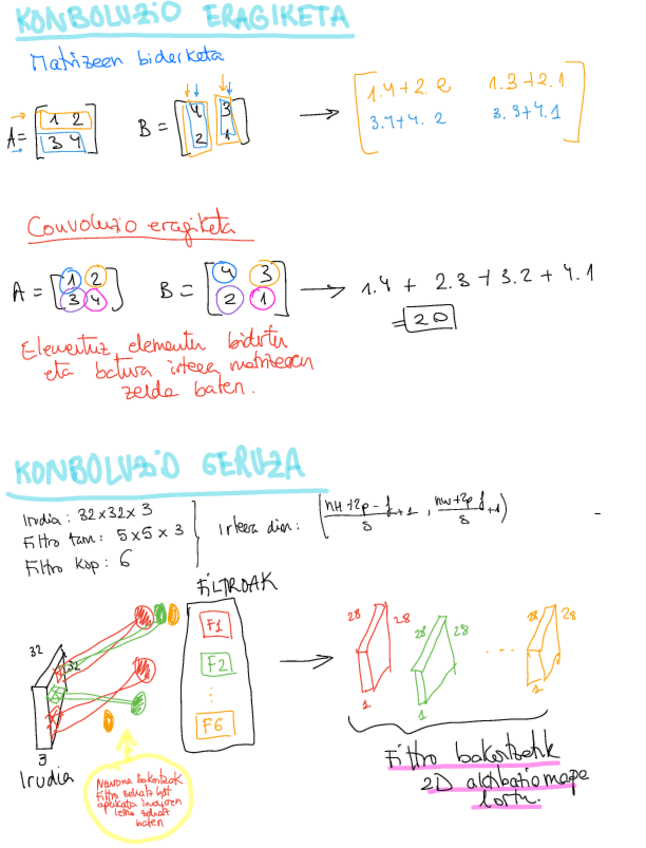 KONBOLUZIO ERAGIKETA
Matrizeen biderketa
A = [1 2
3 4]
B = [4 3
2 1]
→ [1.4+2.2 1.3+2.1
3.4+4.2 3.3+4.1]
Convoluzio eragiketa
A = [1 2
3 4]
B = [4 3
2 1]
→ 1.4 + 2.3 + 3.2 + 4.1
= 20
Elementuz elementu bidertu
eta batura irteera matrizearen
zelda baten.
KONBOLUZIO GERUZA
Irudia : 32x32x3
Filtro tam: 5x5x3
Filtro kop: 6
Irteera dim: (nH+2p-f/s +1, nw+2p-f/s +1)
FILTROAK
F1
F2
⋮
F6
32
32
3
Irudia
→
28 28
1
28 28
1
...
28 28
1
Neurona bakoitzak
Filtro
aplikata irudiaren
baten
Filtro bakoitzetik
2D aktibazio mapa
lortu.